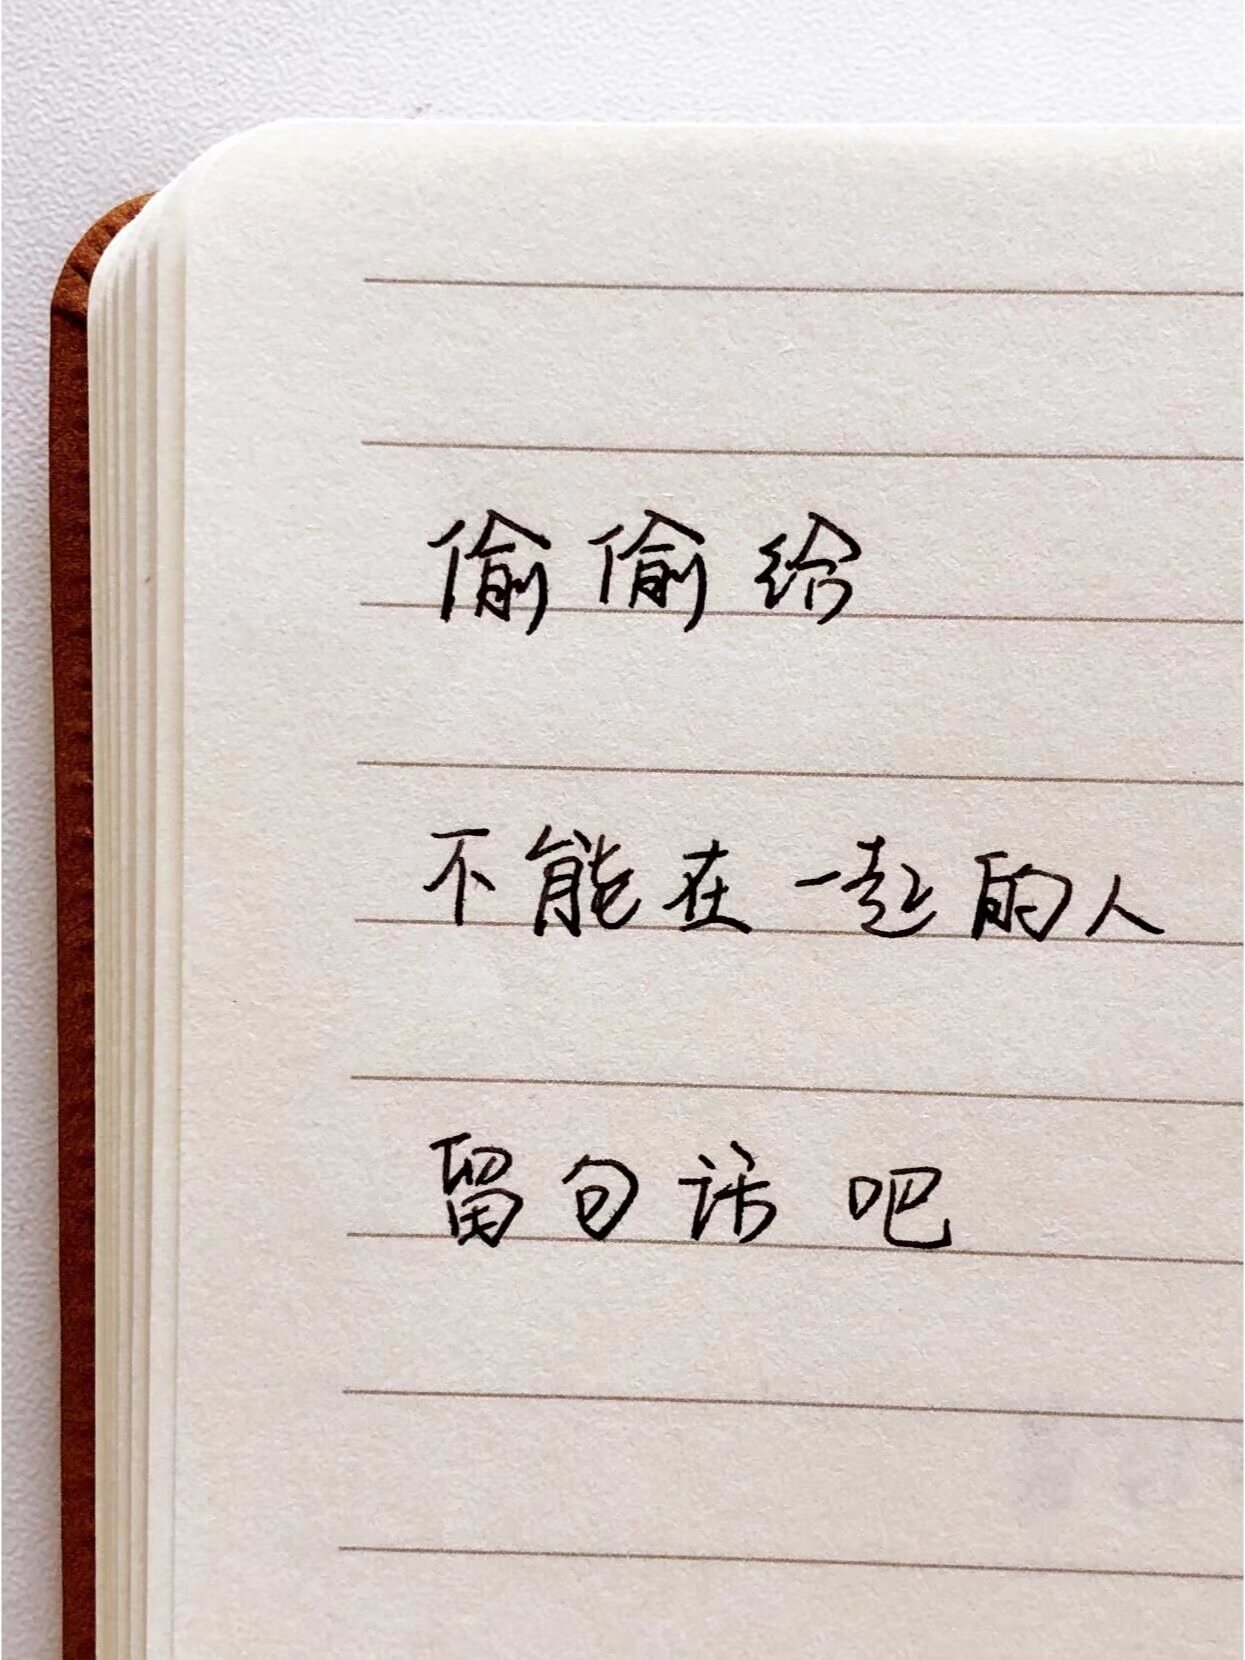 偷偷给
不能在一起的人
留句话吧